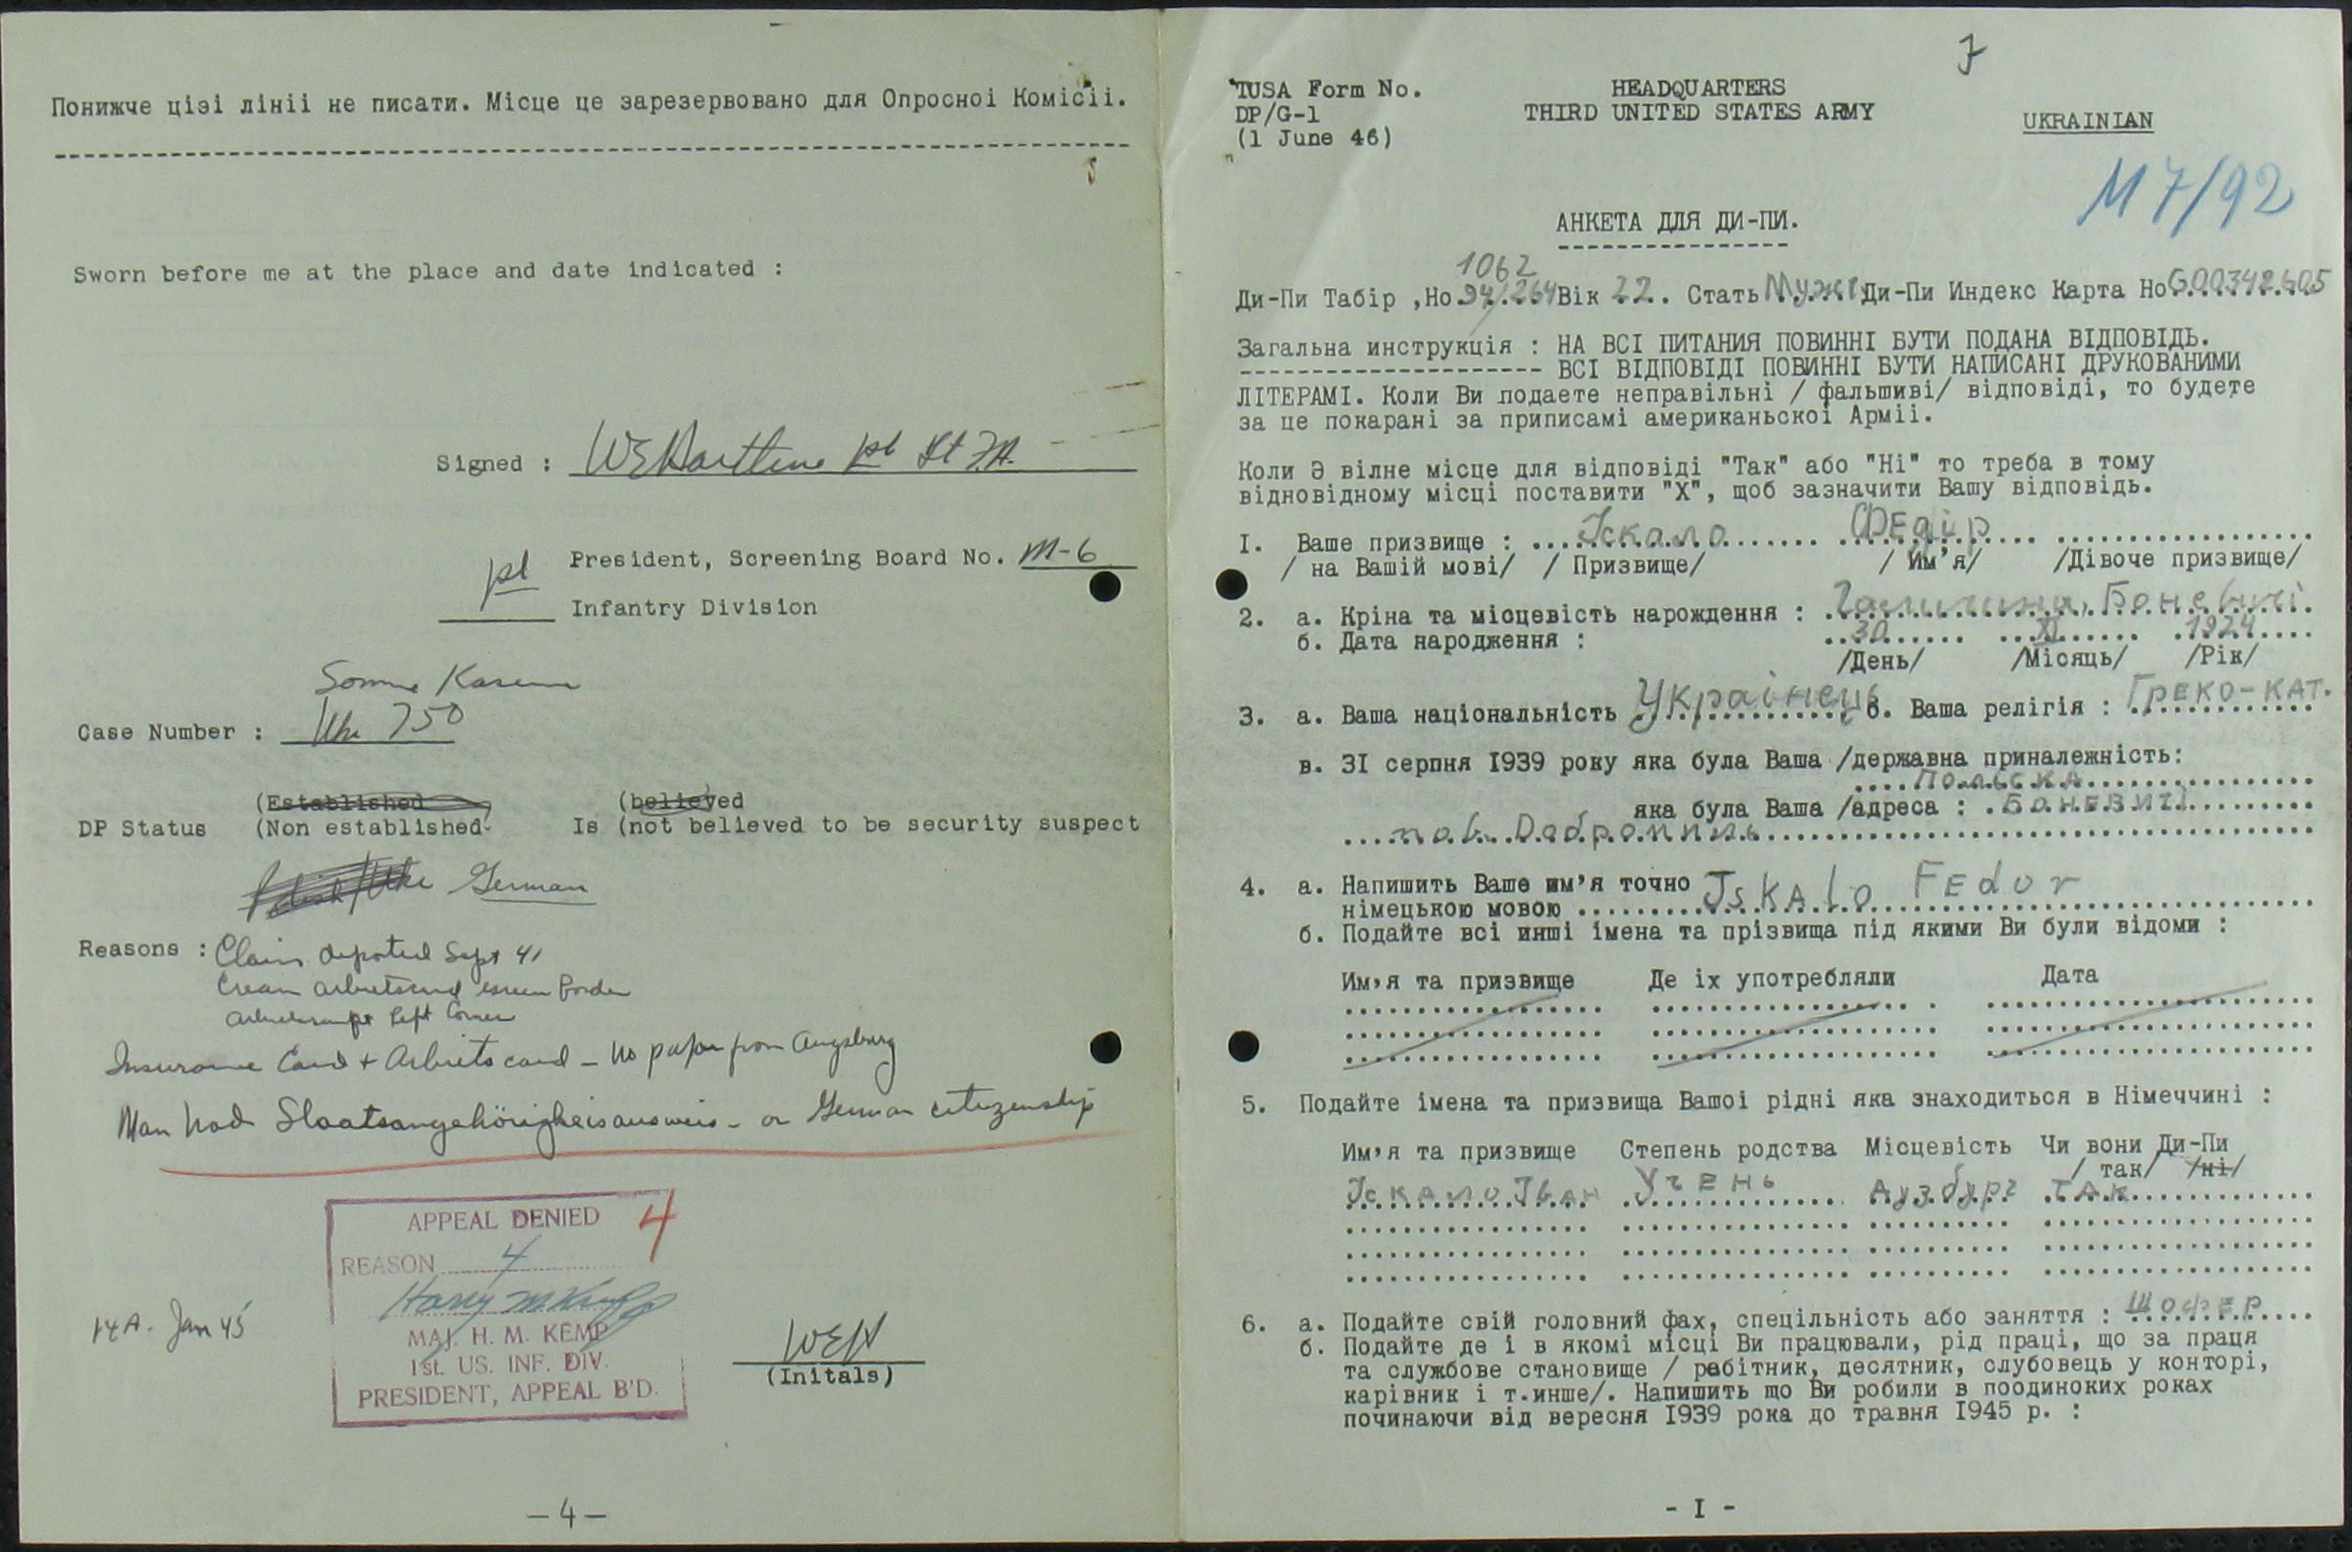 Понижче цієі лініі не писати. Місце це зарезервовано для Опросноі Комісіі.
Sworn before me at the place and date indicated :
Signed : WEHartline 1st Lt FA.
President, Screening Board No. M-6
1st Infantry Division
Somme Kaserne
Case Number : Ukr 750
(Established (believed
DP Status (Non established Is (not believed to be security suspect
German
Reasons : Claims deported Sept 41
Cream arbeitscard green border
left corner
Insurance Card + Arbeits card - No paper from Augsburg
Man had Staatsangehörigkeisausweis - or German citizenship
APPEAL DENIED 4
REASON 4
Harry M Kemp
MAJ. H. M. KEMP
1st. US. INF. DIV.
PRESIDENT, APPEAL B'D.
14A. Jan 45
WEH
(Initals)
- 4 -
7
TUSA Form No. HEADQUARTERS
DP/G-1 THIRD UNITED STATES ARMY
(1 June 46) UKRAINIAN
M 7/92
АНКЕТА ДЛЯ ДИ-ПИ.
1062
Ди-Пи Табір ,Но 94/264 Вік 22. Стать Мужч. Ди-Пи Индекс Карта Но G00342605
Загальна инструкція : НА ВСІ ПИТАНИЯ ПОВИННІ БУТИ ПОДАНА ВІДПОВІДЬ.
ВСІ ВІДПОВІДІ ПОВИННІ БУТИ НАПИСАНІ ДРУКОВАНИМИ
ЛІТЕРАМІ. Коли Ви подаете неправільні / фальшиві/ відповіді, то будете
за це покарані за приписамі американьскоі Арміі.
Коли Э вілне місце для відповіді "Так" або "Ні" то треба в тому
відновідному місці поставити "X", щоб зазначити Вашу відповідь.
I. Ваше призвище : Іскало Федір
/ на Вашій мові/ / Призвище/ / Им'я/ /Дівоче призвище/
2. а. Кріна та місцевість нарождення : Галичина, Боневичі
б. Дата народження : 30 XI 1924
/День/ /Місяць/ /Рік/
3. а. Ваша національність Українець б. Ваша релігія : Греко-кат.
в. 3I серпня I939 року яка була Ваша /державна приналежність:
Польска
яка була Ваша /адреса : Боневичі
пов. Добромиль
4. а. Напишить Ваше им'я точно
німецькою мовою Jskalo Fedor
б. Подайте всі инші імена та прізвища під якими Ви були відоми :
Им'я та призвище Де іх употребляли Дата
5. Подайте імена та призвища Вашоі рідні яка знаходиться в Німеччині :
Им'я та призвище Степень родства Місцевість Чи вони Ди-Пи
/ так/ /ні/
Іскало Іван Учень Аузбург так
6. а. Подайте свій головний фах, спецільність або заняття : Шофер
б. Подайте де і в якомі місці Ви працювали, рід праці, що за праця
та службове становище / рабітник, десятник, слубовець у конторі,
карівник і т.инше/. Напишить що Ви робили в поодиноких роках
починаючи від вересня I939 рока до травня I945 р. :
- I -